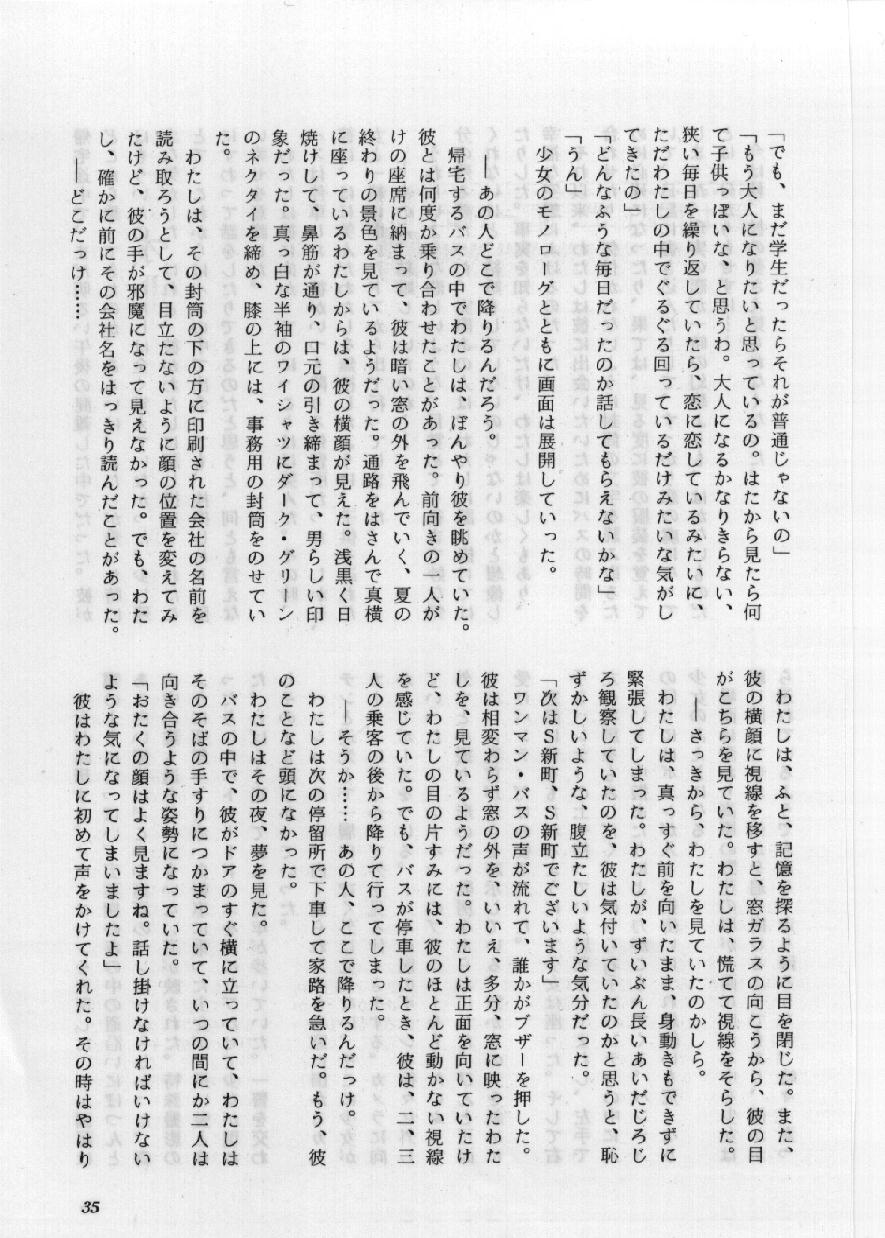 「でも、まだ学生だったらそれが普通じゃないの」
「もう大人になりたいと思っているの。はたから見たら何
て子供っぽいな、と思うわ。大人になるかなりきらない、
狭い毎日を繰り返していたら、恋に恋しているみたいに、
ただわたしの中でぐるぐる回っているだけみたいな気がし
てきたの」
「どんなふうな毎日だったのか話してもらえないかな」
「うん」
少女のモノローグとともに画面は展開していった。
――あの人どこで降りるんだろう。
帰宅するバスの中でわたしは、ぼんやり彼を眺めていた。
彼とは何度か乗り合わせたことがあった。前向きの一人が
けの座席に納まって、彼は暗い窓の外を飛んでいく、夏の
終わりの景色を見ているようだった。通路をはさんで真横
に座っているわたしからは、彼の横顔が見えた。浅黒く日
焼けして、鼻筋が通り、口元の引き締まって男らしい印
象だった。真っ白な半袖のワイシャツにダーク・グリーン
のネクタイを締め、膝の上には、事務用の封筒をのせてい
た。
わたしは、その封筒の下の方に印刷された会社の名前を
読み取ろうとして、目立たないように顔の位置を変えてみ
たけど、彼の手が邪魔になって見えなかった。でも、わた
し、確かに前にその会社名をはっきり読んだことがあった。
――どこだっけ……
わたしは、ふと、記憶を探るように目を閉じた。また、
彼の横顔に視線を移すと、窓ガラスの向こうから、彼の目
がこちらを見ていた。わたしは、慌てて視線をそらした。
――さっきから、わたしを見ていたのかしら。
わたしは、真っすぐ前を向いたまま、身動きもできずに
緊張してしまった。わたしが、ずいぶん長いあいだじろじ
ろ観察していたのを、彼は気付いていたのかと思うと、恥
ずかしいような、腹立たしいような気分だった。
「次はS新町、S新町でございます」
ワンマン・バスの声が流れて、誰かがブザーを押した。
彼は相変わらず窓の外を、いいえ、多分、窓に映ったわた
しを、見ているようだった。わたしは正面を向いていたけ
ど、わたしの目の片すみには、彼のほとんど動かない視線
を感じていた。でも、バスが停車したとき、彼は、二、三
人の乗客の後から降りて行ってしまった。
――そうか……あの人、ここで降りるんだっけ。
わたしは次の停留所で下車して家路を急いだ。もう、彼
のことなど頭になかった。
わたしはその夜、夢を見た。
バスの中で、彼がドアのすぐ横に立っていて、わたしは
そのそばの手すりにつかまっていて、いつの間にか二人は
向き合うような姿勢になっていた。
「おたくの顔はよく見ますね。話し掛けなければいけない
ような気になってしまいましたよ」
彼はわたしに初めて声をかけてくれた。その時はやはり
35